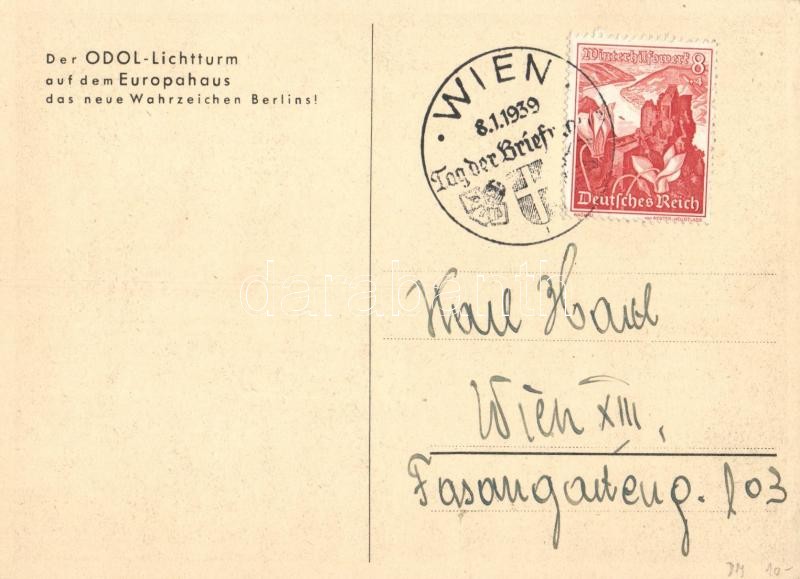 Der ODOL-Lichtturm
auf dem Europahaus
das neue Wahrzeichen Berlins!
WIEN
8.1.1939
Tag der
Winterhilfswerk 8
+4
Deutsches Reich
darabanth
Karl
Wien XIII,
Fasangarteng. 103
10-